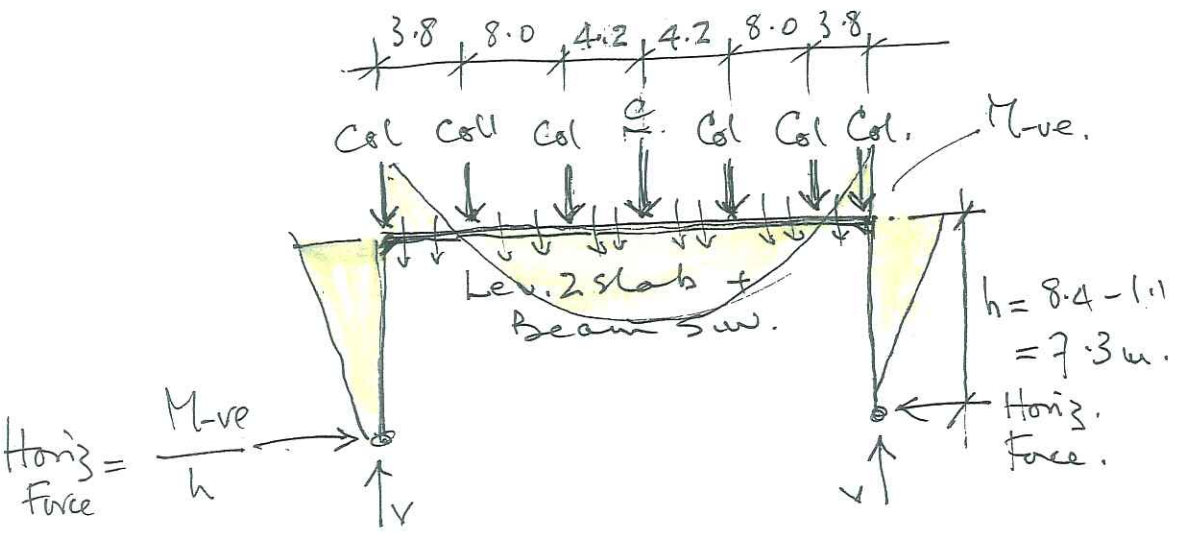 3.8 8.0 4.2 4.2 8.0 3.8
Col Coll Col Col Col Col.
M-ve.
Lev. 2 slab +
Beam sw.
h = 8.4 - 1.1
= 7.3 m.
Horiz.
Force.
Horiz = M-ve
Force h
V V